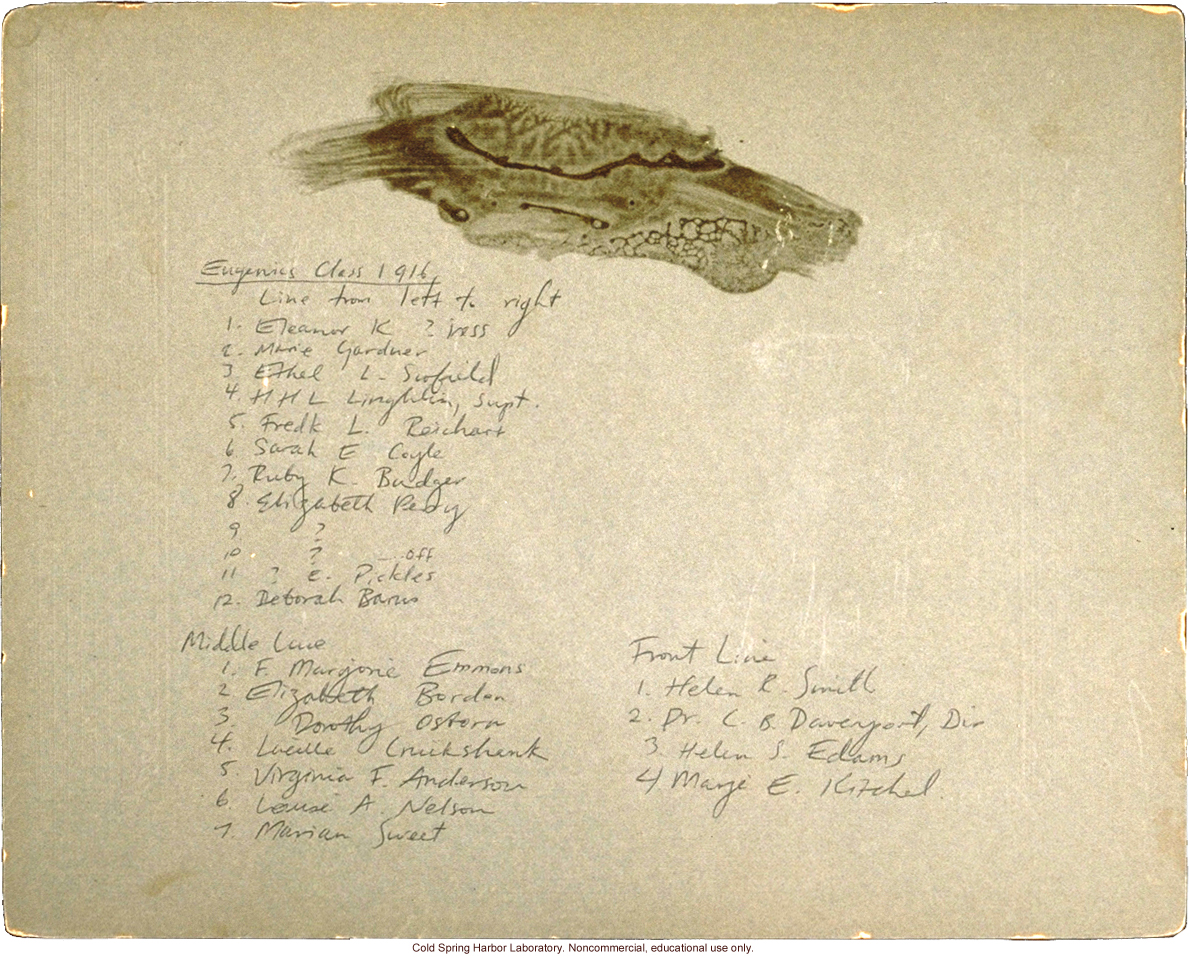 Eugenics Class 1916
Line from left to right
1. Eleanor K ? iess
2. Marie Gardner
3 Ethel L. Scofield
4. H H L Linghlin, Supt.
5. Fredk L. Reichart
6 Sarah E Coyle
7. Ruby K. Badger
8. Elizabeth Perry
9 ?
10 ? _...off
11 ? E. Pickles
12. Deborah Barus
Middle Line
1. F. Marjorie Emmons
2 Elizabeth Borden
3. Dorothy Osborn
4. Lucille Cruickshank
5 Virginia F. Anderson
6 Louise A. Nelson
7. Marian Sweet
Front Line
1. Helen R. Smith
2. Dr. C. B. Davenport, Dir
3 Helen S. Edams
4 Marji E. Kitchel.
Cold Spring Harbor Laboratory. Noncommercial, educational use only.